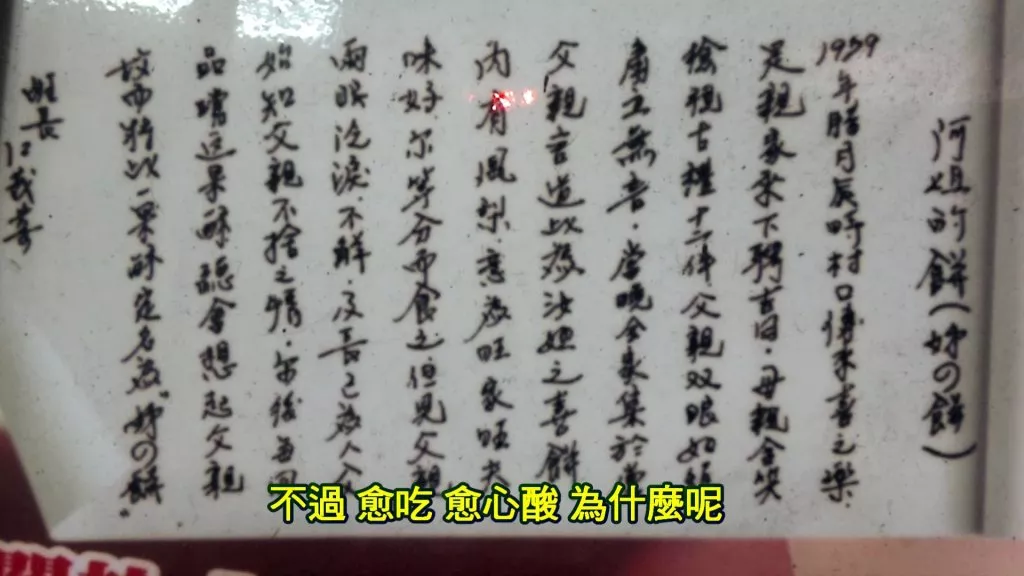 阿姐的餅(姊の餅)
1959年臘月辰時村口傳來喜之樂.
是親家來下聘吉日.母親含笑
檢視古禮十二件父親双眼如紅
庸工無言.當晚全家集於
父親言道此為汝姐之喜餅
內有鳳梨.意為旺家旺夫
味好.尔等分而食之.但見父親
兩眼泛淚.不解.及長已為人父
始知父親不捨之情.尔後每回
品嚐這果酥總會想起父親
故而特以一果酥定名為"姊の餅"
不過 愈吃 愈心酸 為什麼呢